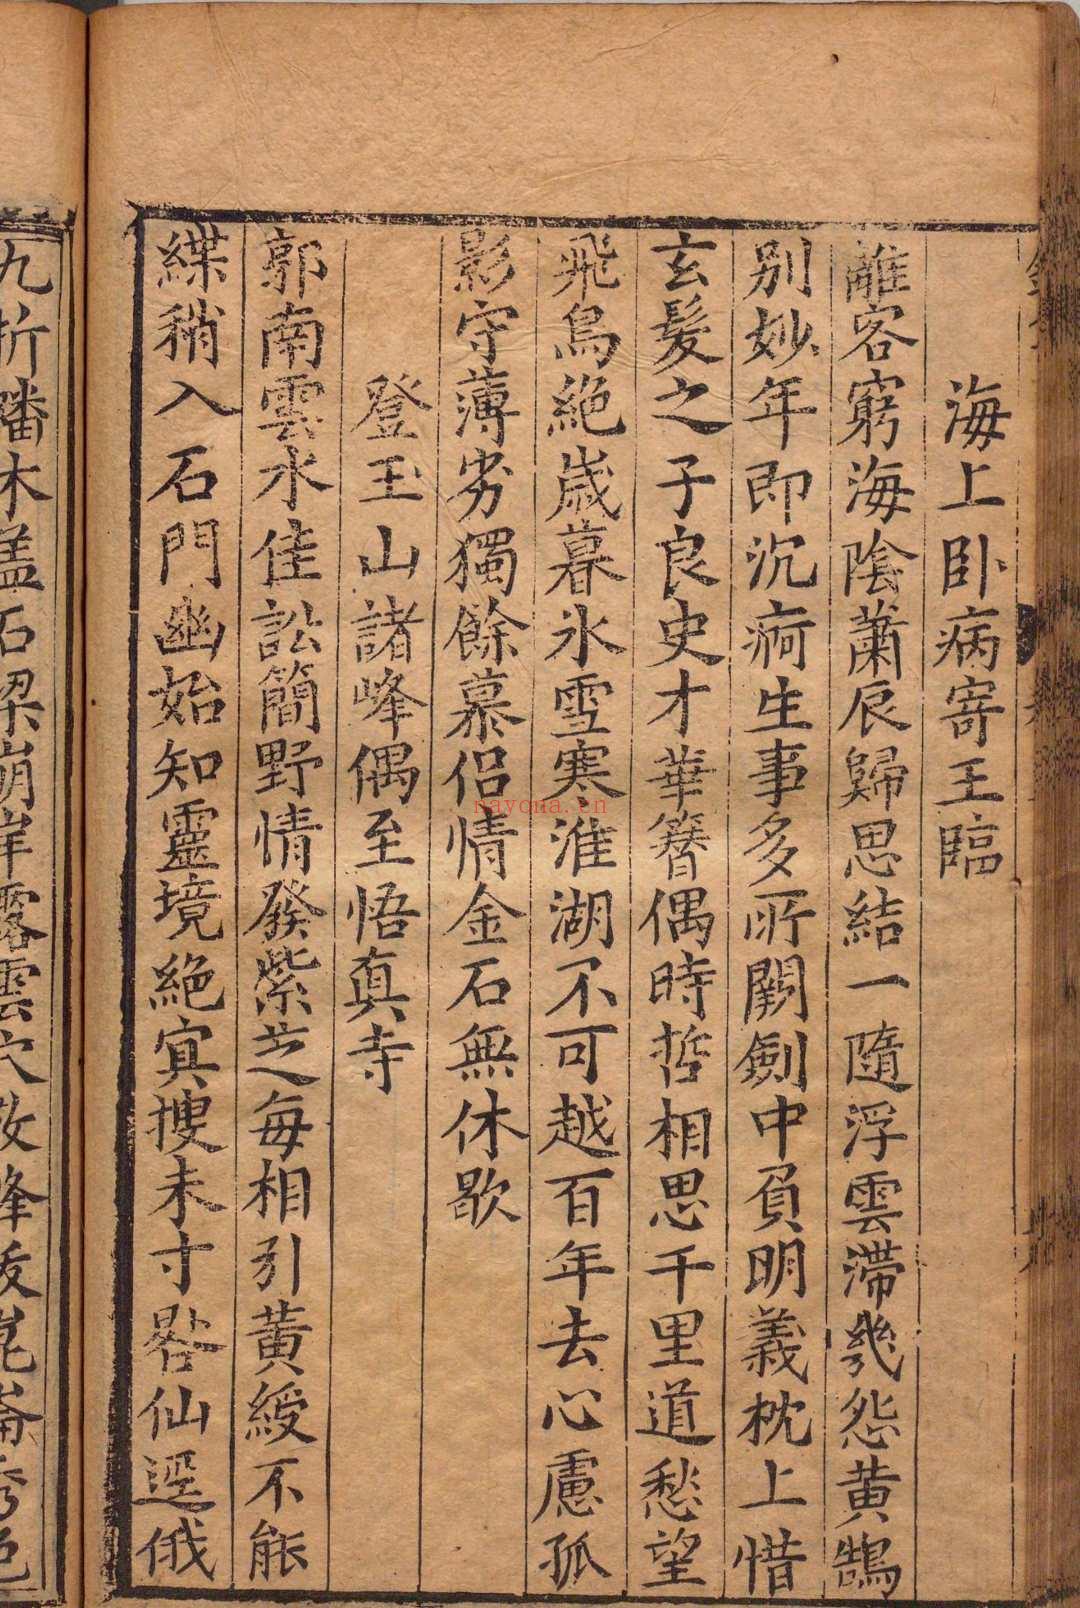 海上卧病寄王臨
離客窮海陰蕭辰歸思結一隨浮雲滯幾怨黄鵠
别妙年即沉痾生事多所闕劍中負明義枕上惜
玄髮之子良史才華簪偶時哲相思千里道愁望
飛鳥絶歲暮氷雪寒淮湖不可越百年去心慮孤
影守薄劣獨餘慕侣情金石無休歇
登玉山諸峰偶至悟真寺
郭南雲水佳訟簡野情發紫芝每相引黄綬不能
緤稍入石門幽始知靈境絶冥捜未寸晷仙逕俄
九折蟠木盖石梁崩岸露雲穴數峰
nayona.cn